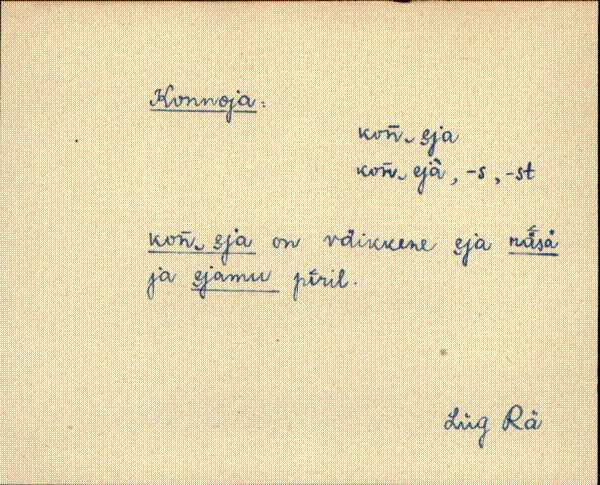 Konnoja:
kon̄‿ e̮ja
kon̄‿ e̮jà, -s, -st
kon̄‿ e̮ja on väikkene e̮ja nä̆sä
ja e̮jamu pīril.
Lüg Rä